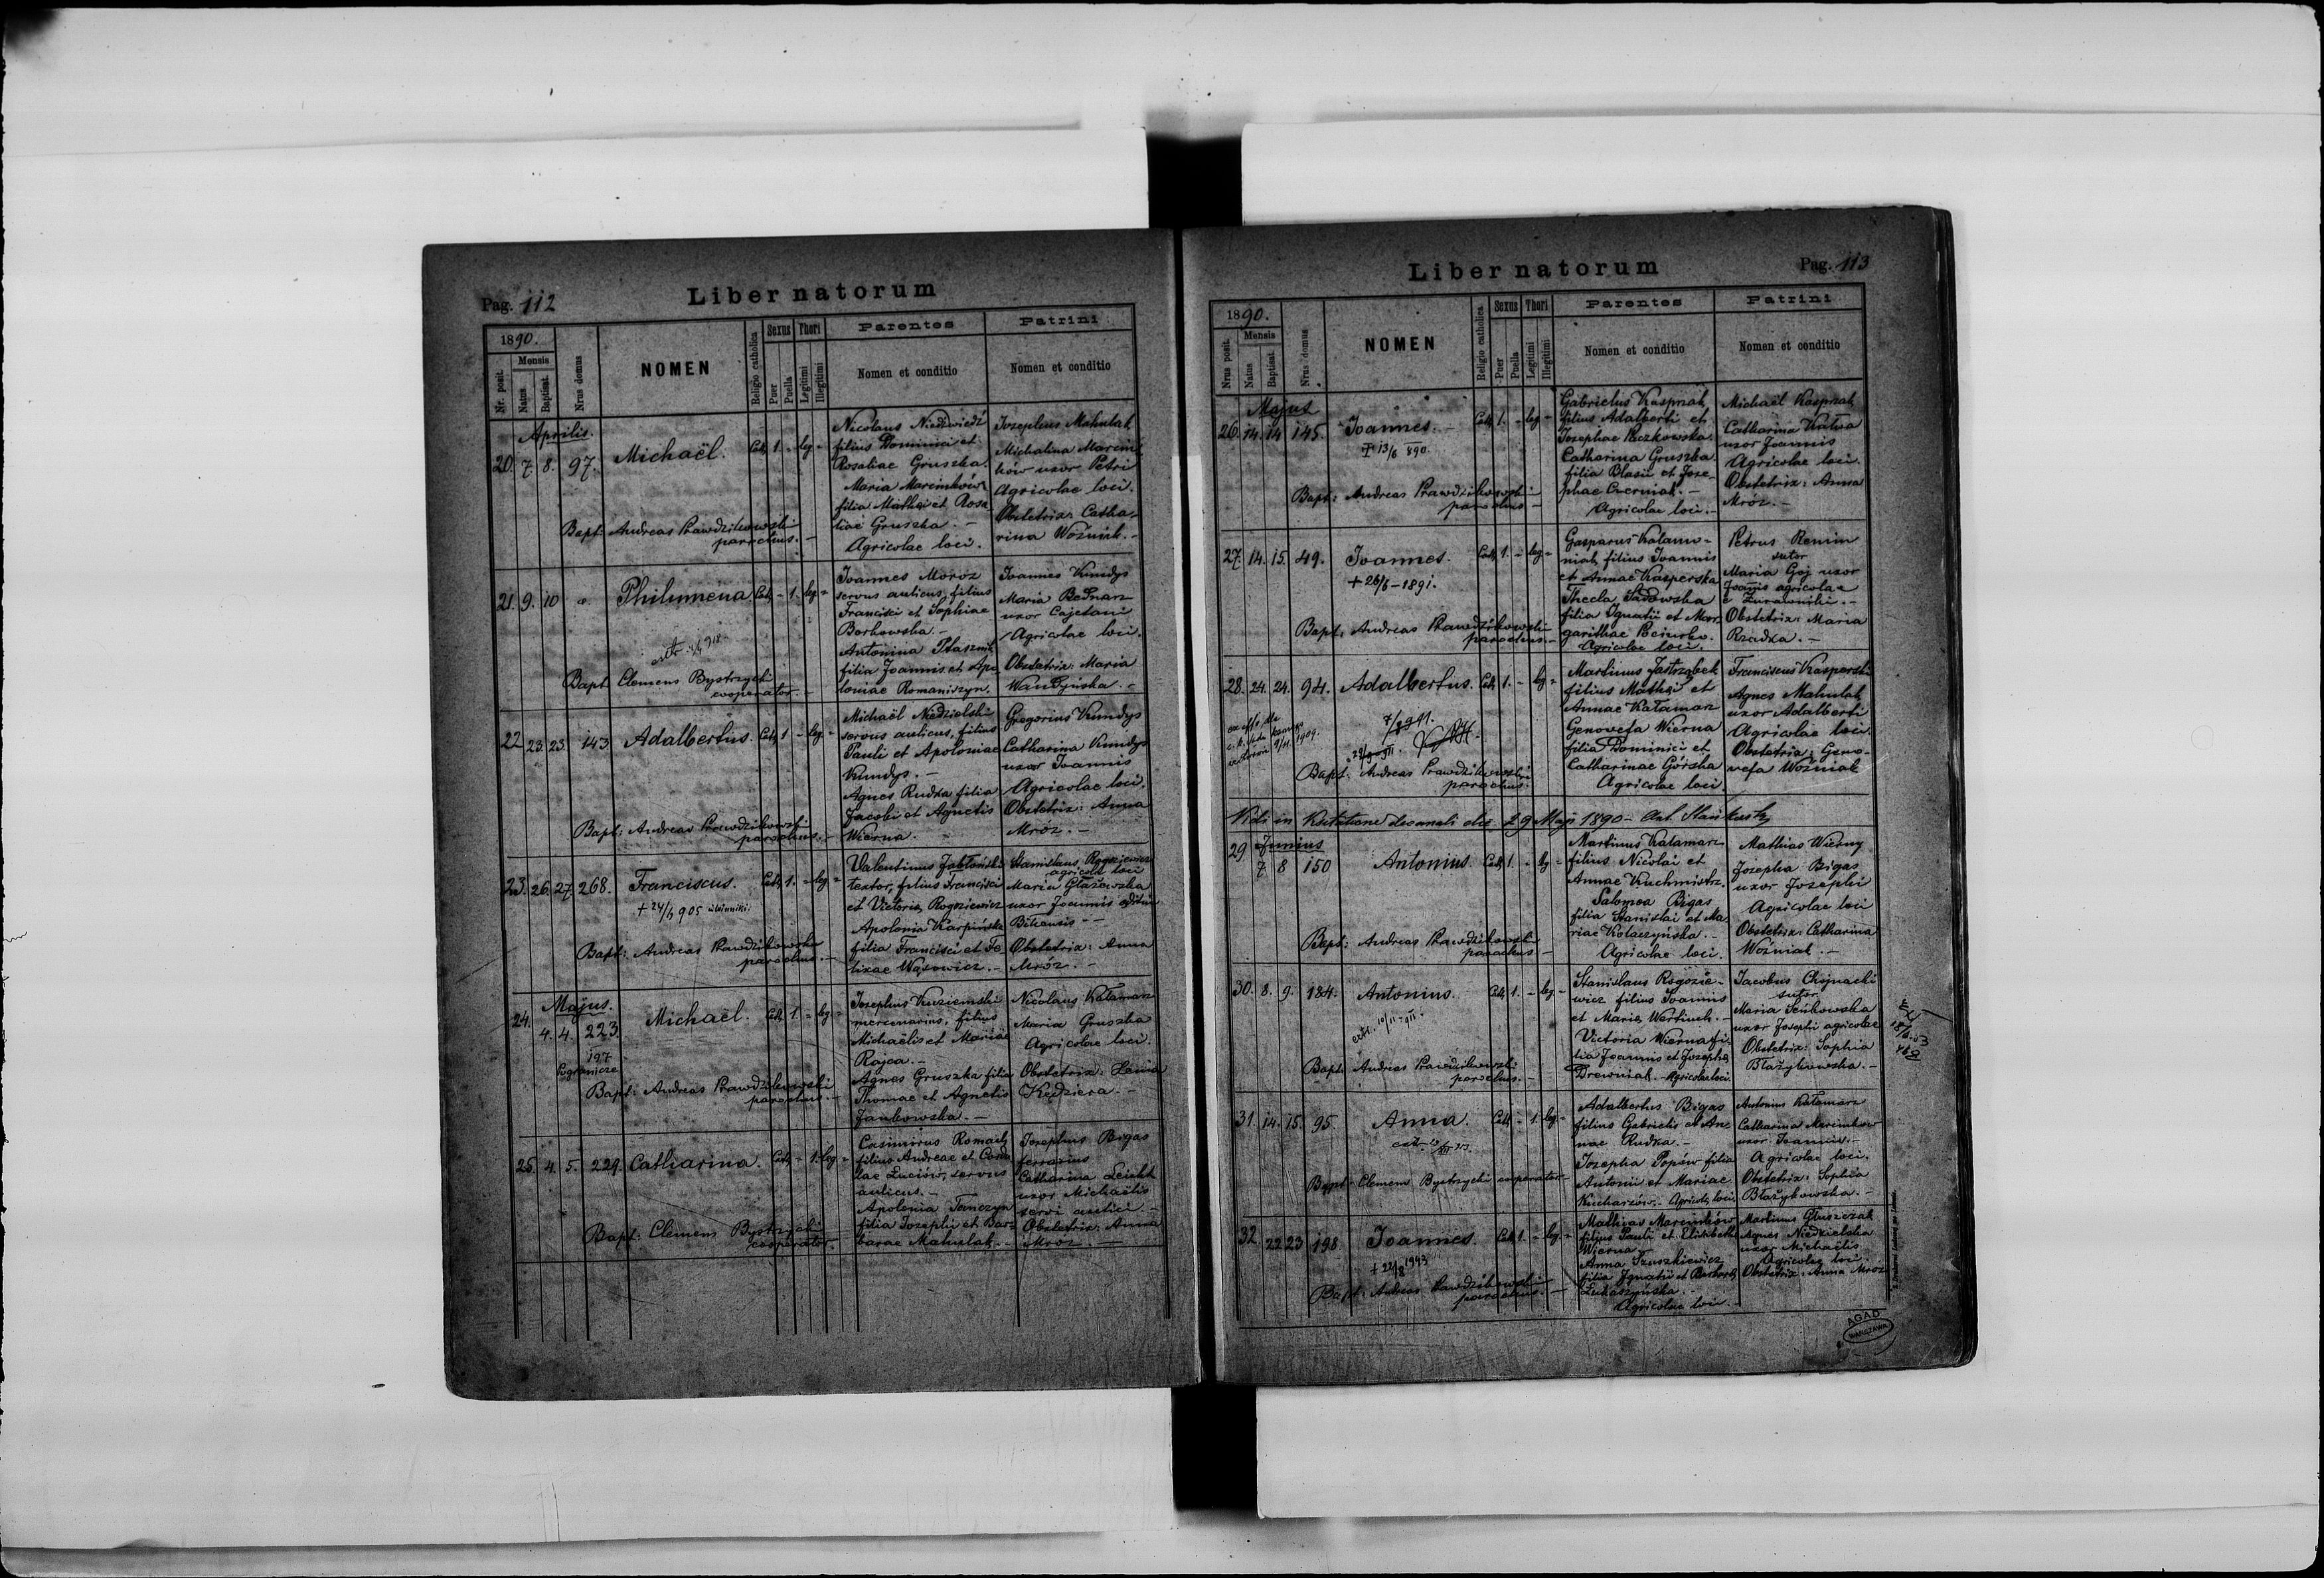 Pag. 112
Liber natorum
1890.
Nr. posit.
Mensis
Natus
Baptisat.
Nrus domus
NOMEN
Religio catholica
Sexus
Puer
Puella
Thori
Legitimi
Illegitimi
Parentes
Nomen et conditio
Patrini
Nomen et conditio
Aprilis.
20. 7. 8. 97. Michaël. Cath. 1. - leg -
Bapt: Andreas Prawdzikowski
parochus. -
Nicolaus Niedźwiedź
filius Dominici et
Rosaliae Gruszka.
Maria Marcinków
filia Mathei et Rosa
liae Gruszka. -
Agricolae loci.
Josephus Mahulak
Michalina Marcin
ków uxor Petri
Agricolae loci.
Obstetrix: Catha-
rina Woźniak. -
21. 9. 10 Philumena. Cath. - 1. leg -
Bapt. Clemens Bystrzycki
cooperator. -
Joannes Moroz
servus aulicus, filius
Francisci et Sophiae
Borkowska. -
Antonina Ptasznik
filia Joannis et Apo
loniae Romaniszyn.
Joannes Kundys
Maria Bednarz
uxor Cajetani
Agricolae loci.
Obstetrix: Maria
22. 23. 23. 143. Adalbertus. Cath. 1 - leg. -
Bapt: Andreas Prawdzikowski
parochus. -
Michaël Niedzielski
servus aulicus, filius
Pauli et Apoloniae
Kundys. -
Agnes Rudka filia
Jacobi et Agnetis
Wierna.
Gregorius Kundys
Catharina Kundys
uxor Joannis
Agricolae loci.
Obstetrix: Anna
Mróz. -
23. 26. 27. 268. Franciscus. Cath. 1. - leg -
+ 24/6 905
Bapt: Andreas Prawdzikowski
parochus. -
Valentinus Jabłoński
textor, filius Francisci
et Victoria Rogoziewicz
Apolonia Karpińska
filia Francisci et Fe
licae Wąsowicz. -
Stanislaus Rogoziewicz
agricola loci
Maria Głażewska
uxor Joannis
Obstetrix: Anna
Mróz. -
Majus.
24. 4. 4. 223. Michaël. Cath. 1. - leg. -
197
Pogranicze
Bapt: Andreas Prawdzikowski
parochus. -
Josephus Kuziemski
mercenarius, filius
Michaëlis et Mariae
Rojca. -
Agnes Gruszka filia
Thomae et Agnetis
Jankowska. -
Nicolaus Kałamarz
Maria Gruszka
Agricolae loci.
Obstetrix: Hania
Kędziera. -
25. 4. 5. 229. Catharina. Cath. - 1. leg -
Bapt: Clemens Bystrzycki
cooperator. -
Casimirus Romach
filius Andreae et
lae Luciów, servus
aulicus. -
Apolonia Tomczyn
filia Josephi et Bar
barae Mahulak.
Josephus Bigas
ferrarius
Catharina Leicht
uxor Michaëlis
servi aulici -
Obstetrix: Anna
Mróz. -
Liber natorum
Pag. 113
1890.
Nrus posit.
Mensis
Natus
Baptisat.
Nrus domus
NOMEN
Religio catholica
Sexus
Puer
Puella
Thori
Legitimi
Illegitimi
Parentes
Nomen et conditio
Patrini
Nomen et conditio
Majus
26. 14. 14 145. Joannes. - Cath. 1. - leg -
13/6 890.
Bapt: Andreas Prawdzikowski
parochus -
Gabrielus Kasprzak
filius Adalberti et
Josephae Paczkowska.
Catharina Gruszka
filia Blasii et Jose
phae Czerniak. -
Agricolae loci. -
Michaël Kasprzak
Catharina Kałwa
uxor Joannis
Agricolae loci.
Obstetrix: Anna
Mróz. -
27. 14. 15. 49. Joannes. Cath. 1. - leg -
+ 26/6 - 1891.
Bapt: Andreas Prawdzikowski
parochus. -
Gasparus Kalamo-
niak filius Joannis
et Annae Kasperska
Thecla Sadowska
filia Ignatii et Mar
garithae
Agricolae loci.
Petrus Remin
sutor
Maria Goj uxor
Joannis agricolae
e Żurawniki. -
Obstetrix: Maria
Rzadka. -
28. 24. 24. 94. Adalbertus. Cath. 1. - leg -
Bapt: Andreas Prawdzikowski
parochus.
Martinus Jastrzębek
filius Mathei et
Annae Kałamarz
Genovefa Wierna
filia Dominici et
Catharinae Górska
Agricolae loci.
Franciscus Kasperski
Agnes Mahulak
uxor Adalberti
Agricolae loci.
Obstetrix: Geno-
vefa Woźniak
Vidi in visitatione decanali die 29 Maji 1890 -
Junius
29 7. 8 150 Antonius. Cath. 1. - leg -
Bapt: Andreas Prawdzikowski
parochus -
Martinus Kałamarz
filius Nicolai et
Annae Kuchmistrz.
Salomea Bigas
filia Stanislai et Ma
riae Kołaczyńska. -
Agricolae loci.
Mathias Wierny
Josepha Bigas
uxor Josephi
Agricolae loci
Obstetrix: Catharina
Woźniak. -
30. 8. 9. 184. Antonius. Cath. 1. - leg -
Bapt: Andreas Prawdzikowski
parochus. -
Stanislaus Rogozie-
wicz filius Joannis
et Maria
Victoria Wierna fi-
lia Joannis et Josepha
Drewniak. - Agricolae loci.
Jacobus Chojnacki
sutor
Maria Senkowska
uxor Josephi agricolae
Obstetrix: Sophia
Błażykowska. -
31. 14. 15. 95. Anna. Cath. - 1. leg -
Bapt: Clemens Bystrzycki cooperator -
Adalbertus Bigas
filius Gabrielis et An
nae Rudka. -
Josepha Popów filia
Antonii et Mariae
Kucharzów. - Agricolae loci.
Antonius Kałamarz
Catharina Marcinków
uxor Joannis. -
Agricolae loci.
Obstetrix: Sophia
Błażykowska. -
32. 22 23 198. Joannes. Cath. 1. - leg. -
+ 22/8 1943
Bapt: Andreas Prawdzikowski
parochus. -
Mathias Marcinków
filius Pauli et Elisabeth
Wierna -
Anna Szuszkiewicz
filia Ignatii et Barbara
Łukaszyńska. -
Agricolae loci. -
Martinus Głuszczak
Agnes Niedzielska
uxor Michaëlis
Agricolae loci
Obstetrix: Anna Mróz
AGAD
WARSZAWA